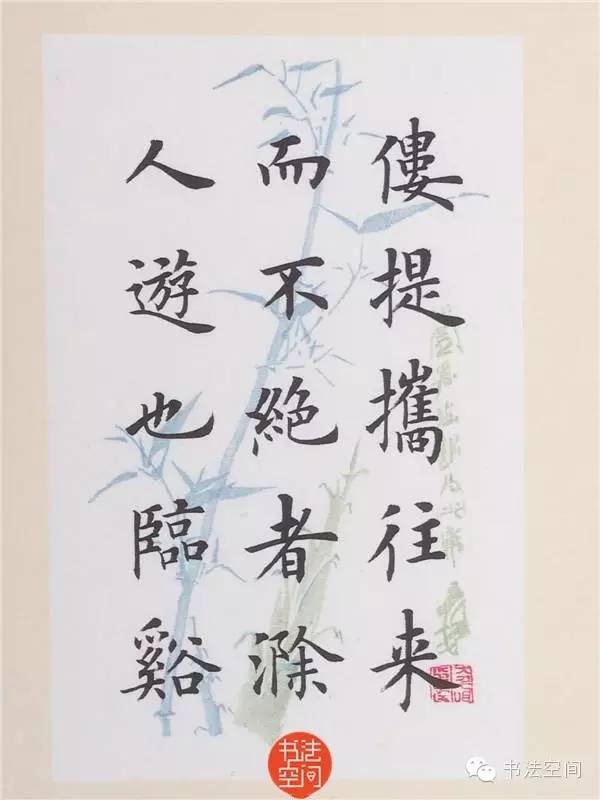 傴提攜往来
而不絶者滁
人遊也臨谿
书法
空间
书法空间